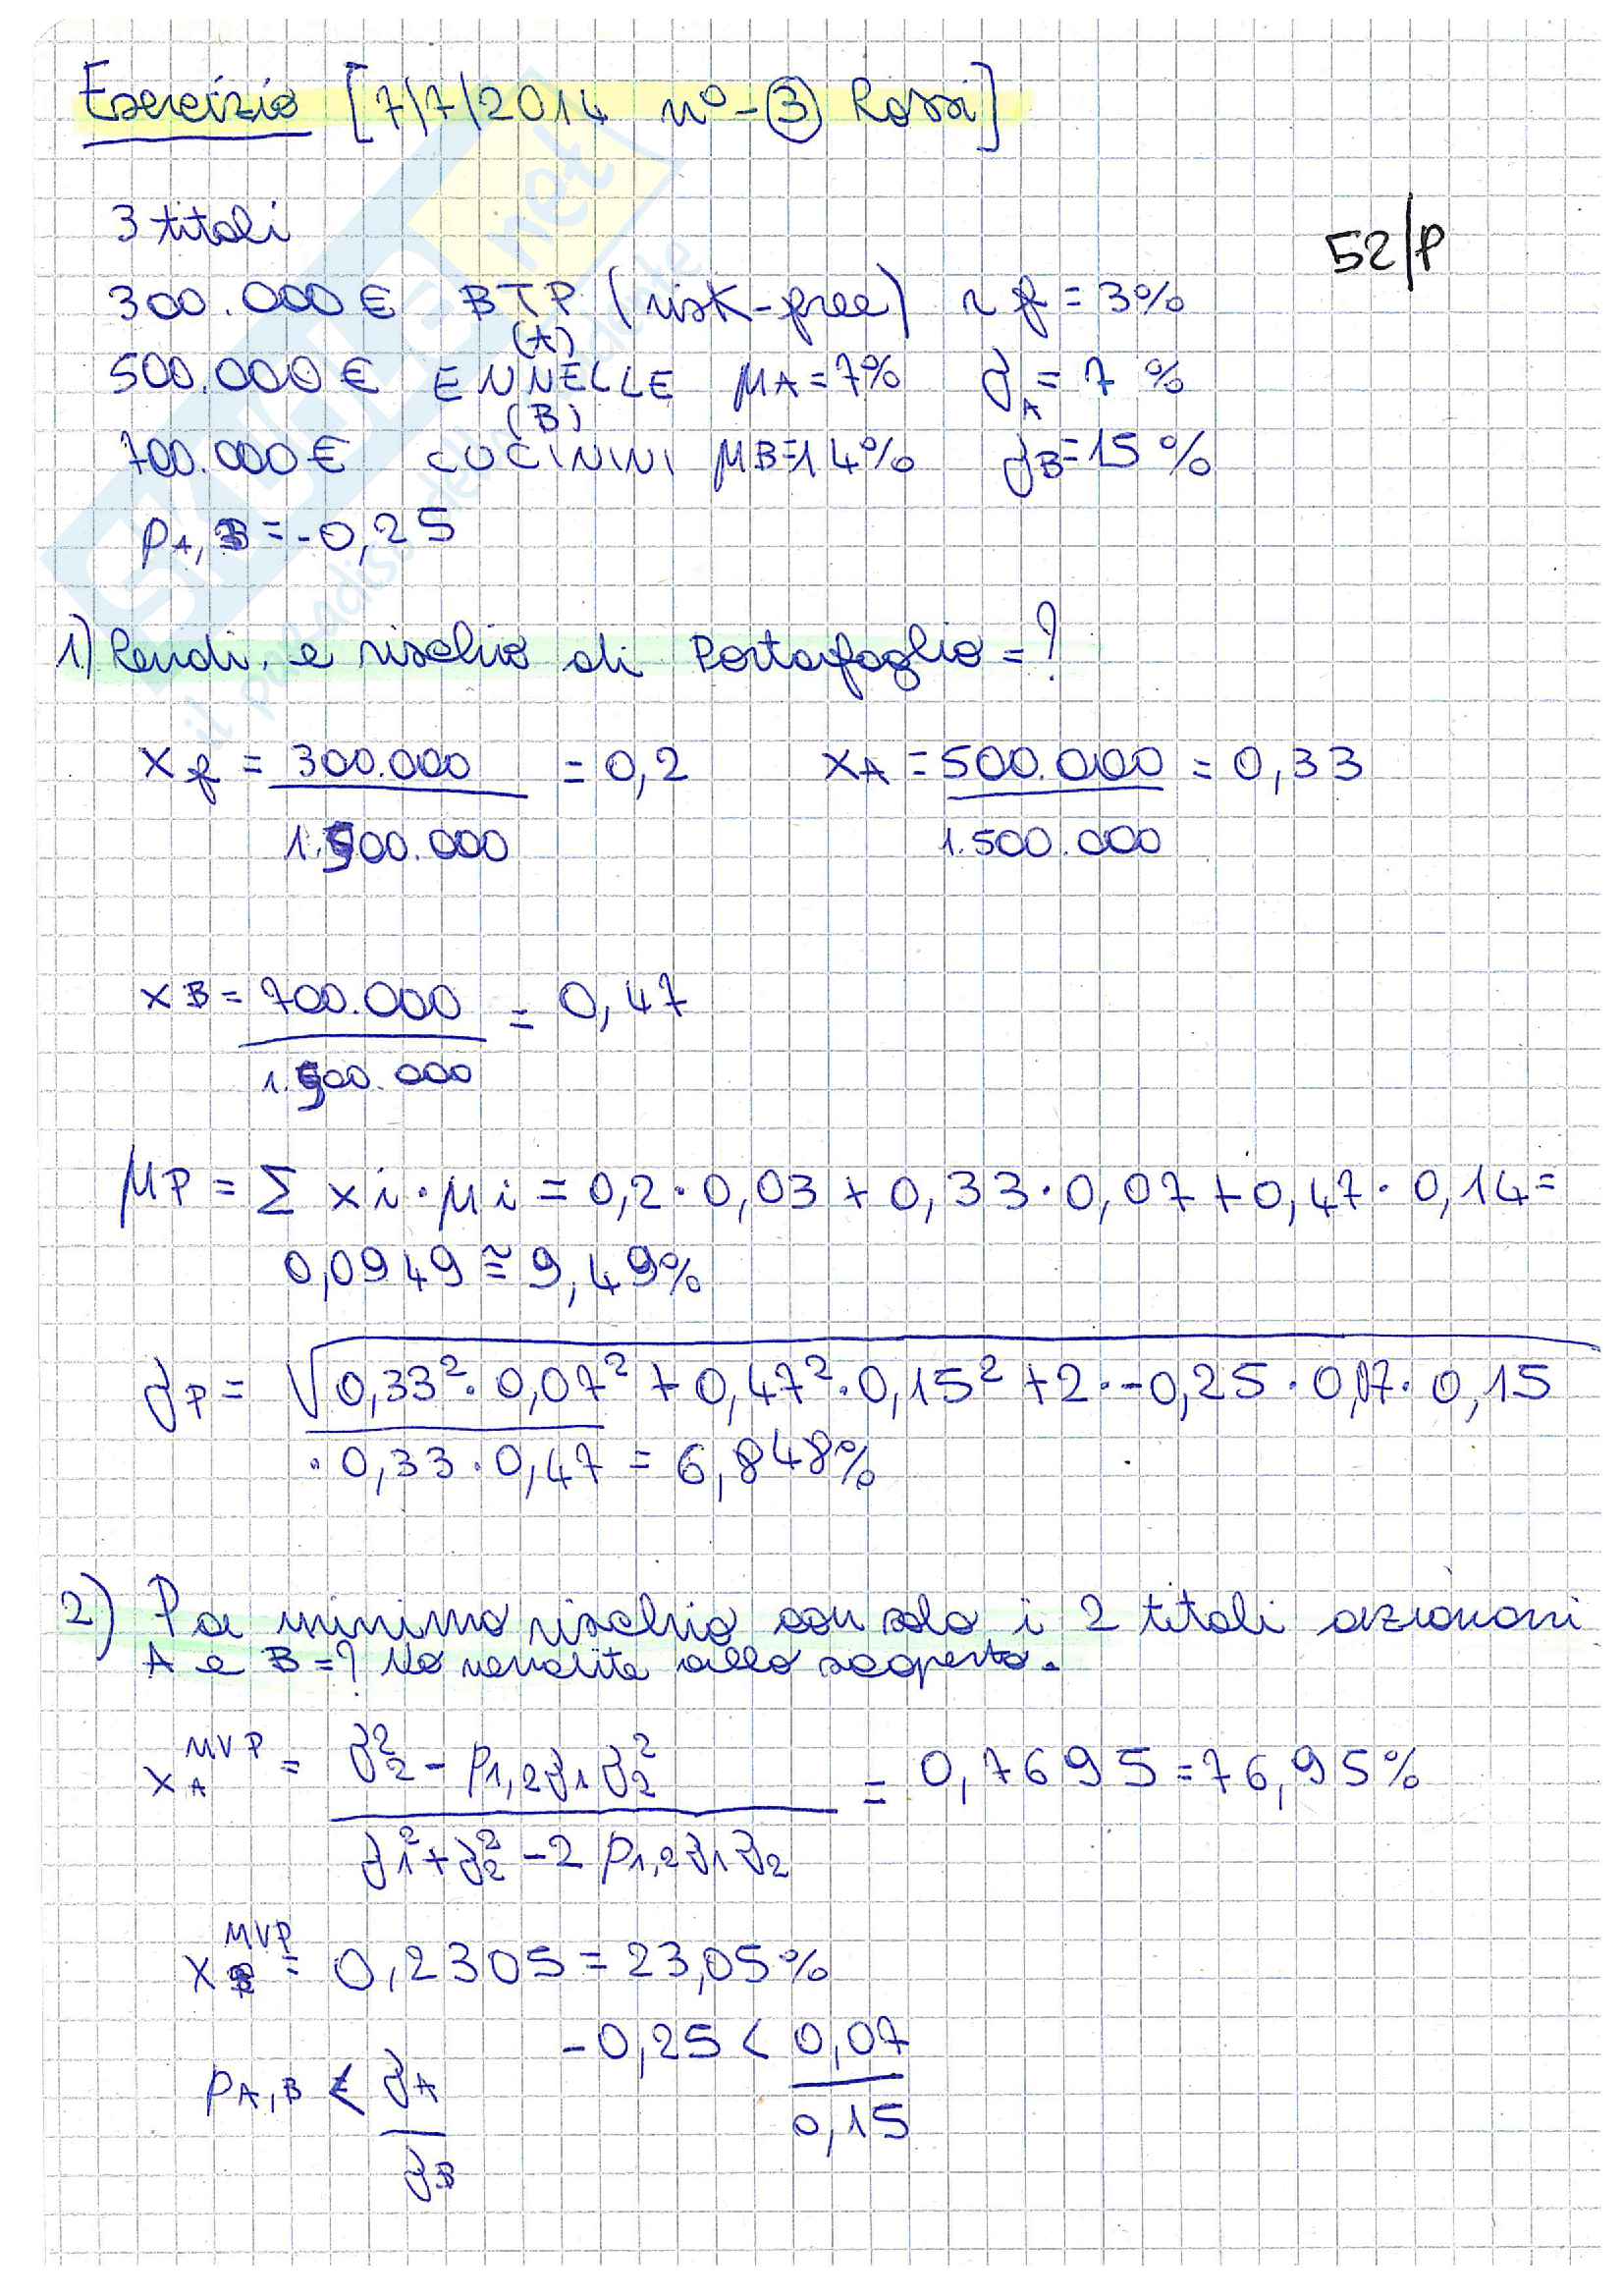 Esercizio [7/7/2014 n° - ③ Rossi]
3 titoli
52/P
300.000 € BTP (risk-free) rf = 3%
(A)
500.000 € ENNELLE μA = 7% σA = 7%
(B)
700.000 € COCININI μB = 14% σB = 15%
ρA,B = -0,25
1) Rendi. e rischio di Portafoglio = ?
xf = 300.000 / 1.500.000 = 0,2 xA = 500.000 / 1.500.000 = 0,33
xB = 700.000 / 1.500.000 = 0,47
μP = Σ xi · μi = 0,2 · 0,03 + 0,33 · 0,07 + 0,47 · 0,14 =
0,0949 ≅ 9,49%
σP = √0,33² · 0,07² + 0,47² · 0,15² + 2 · -0,25 · 0,07 · 0,15
· 0,33 · 0,47 = 6,848%
2) P a minimo rischio con solo i 2 titoli azionari
A e B = ? No vendite allo scoperto.
xA^MVP = σ2² - ρ1,2 σ1 σ2² / σ1² + σ2² - 2 ρ1,2 σ1 σ2 = 0,7695 = 76,95%
xB^MVP = 0,2305 = 23,05%
ρA,B < σA / σB -0,25 < 0,07 / 0,15